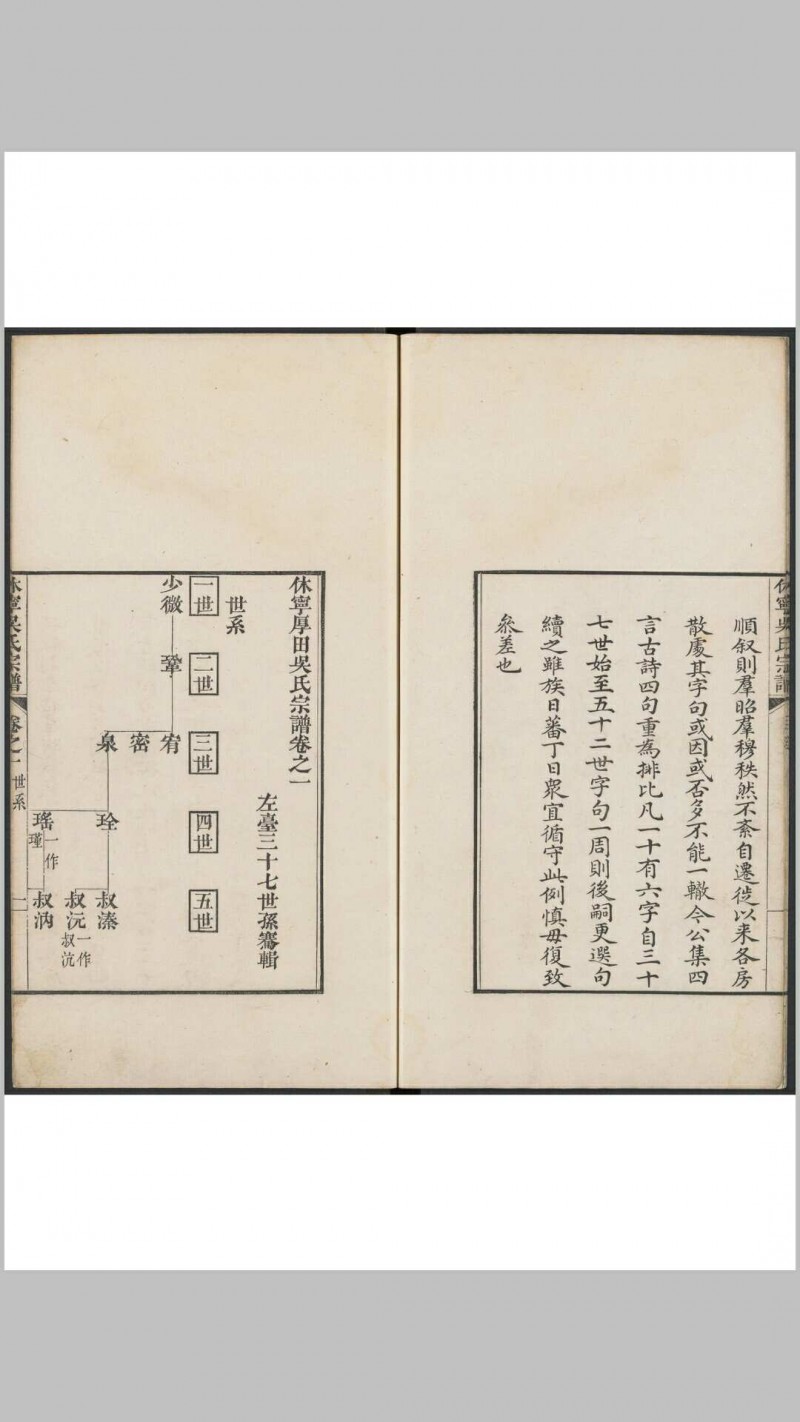 休寧吳氏宗譜
順叙則羣昭羣穆秩然不紊自遷徙以来各房
散處其字句或因或否多不能一轍今公集四
言古詩四句重為排比凡一十有六字自三十
七世始至五十二世字句一周則後嗣更選句
續之雖族日蕃丁日衆宜循守此例慎毋復致
叅差也
休寧厚田吳氏宗譜卷之一
左臺三十七世孫騫輯
世系
一世 二世 三世 四世 五世
少微 鞏 宥
密
泉 珍 叔溱
叔沅 一作叔沆
瑤 一作瑾 叔汭
休寧吳氏宗譜 卷之一 世系 一